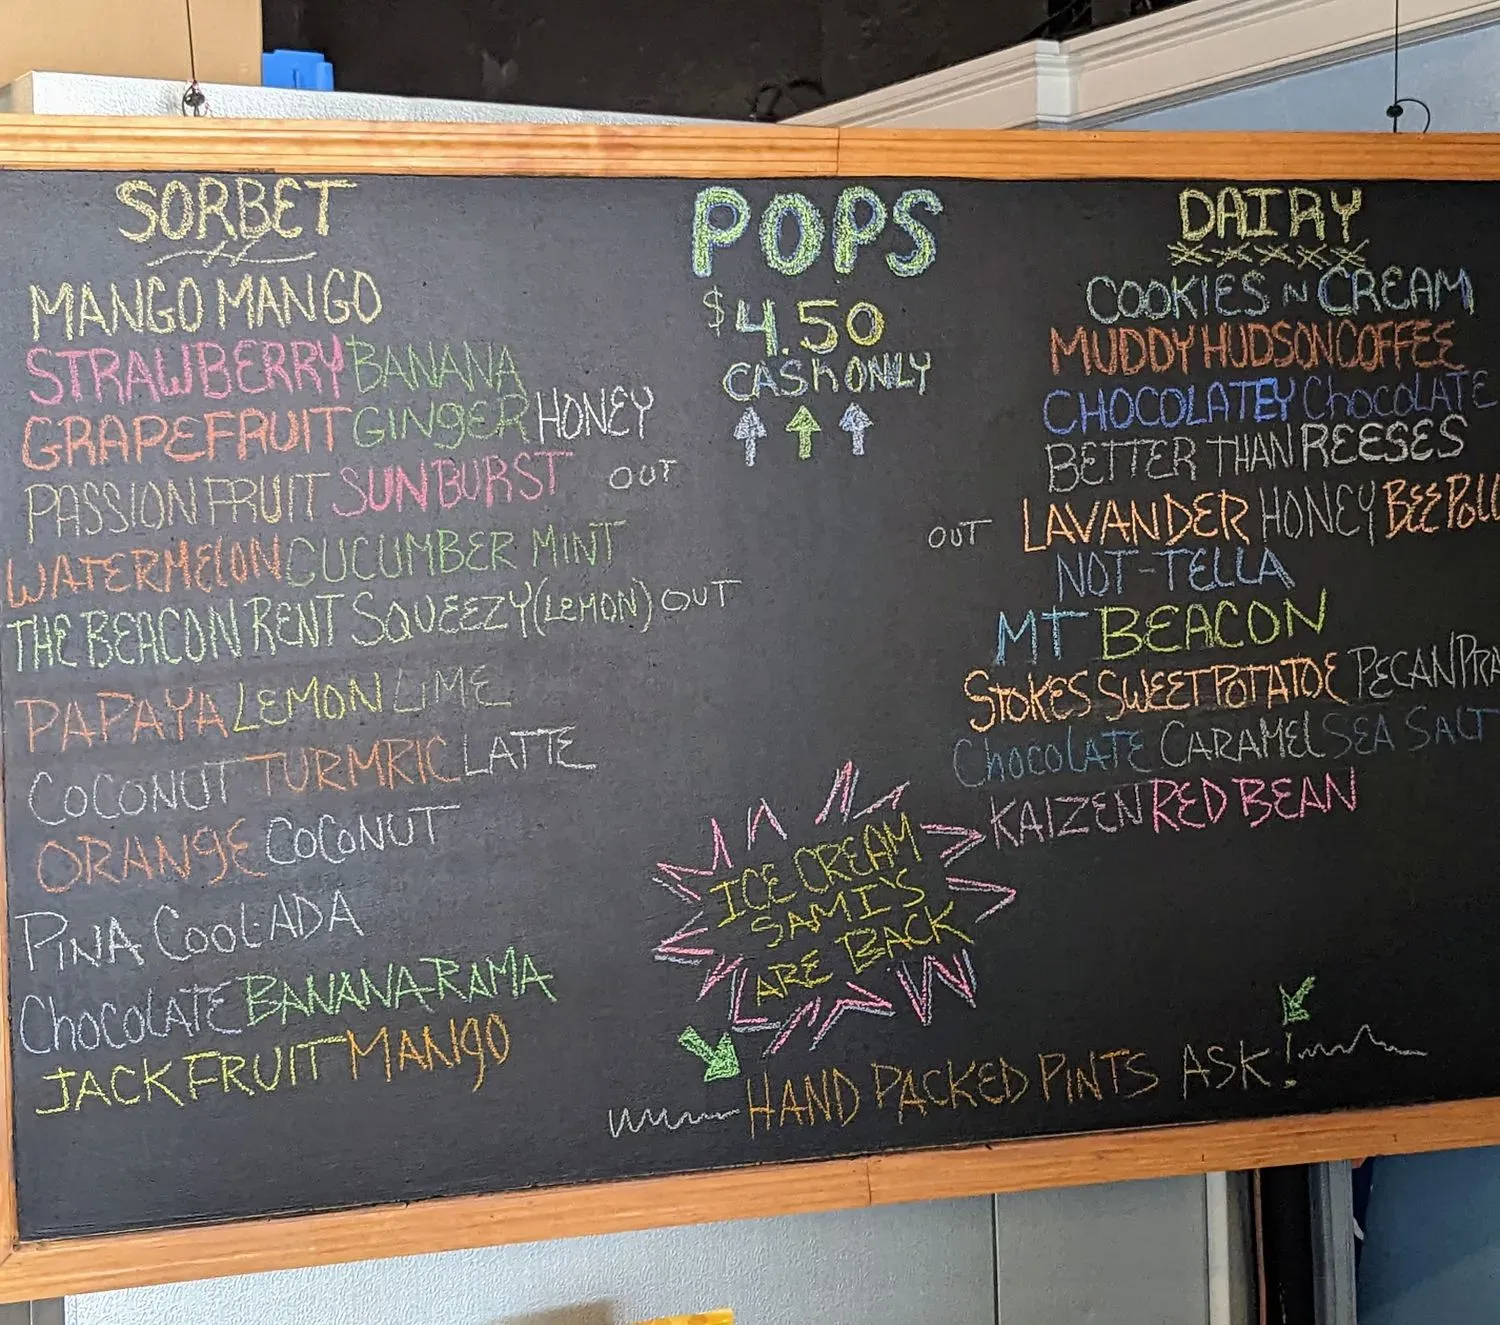 SORBET
MANGO MANGO
STRAWBERRY BANANA
GRAPEFRUIT GINGER HONEY
PASSION FRUIT SUNBURST OUT
WATERMELON CUCUMBER MINT
THE BEACON RENT SQUEEZY (LEMON) OUT
PAPAYA LEMON LIME
COCONUT TURMRIC LATTE
ORANGE COCONUT
PINA COOLADA
CHOCOLATE BANANA-RAMA
JACKFRUIT MANGO
POPS
$4.50
CASH ONLY
ICE CREAM
SAMI'S
ARE BACK
DAIRY
COOKIES N CREAM
MUDDY HUDSON COFFEE
CHOCOLATEY CHOCOLATE
BETTER THAN REESES
OUT LAVANDER HONEY BEE POLL
NOT-TELLA
MT BEACON
STOKES SWEET POTATOE PECAN PRA
CHOCOLATE CARAMEL SEA SALT
KAIZEN RED BEAN
HAND PACKED PINTS ASK!